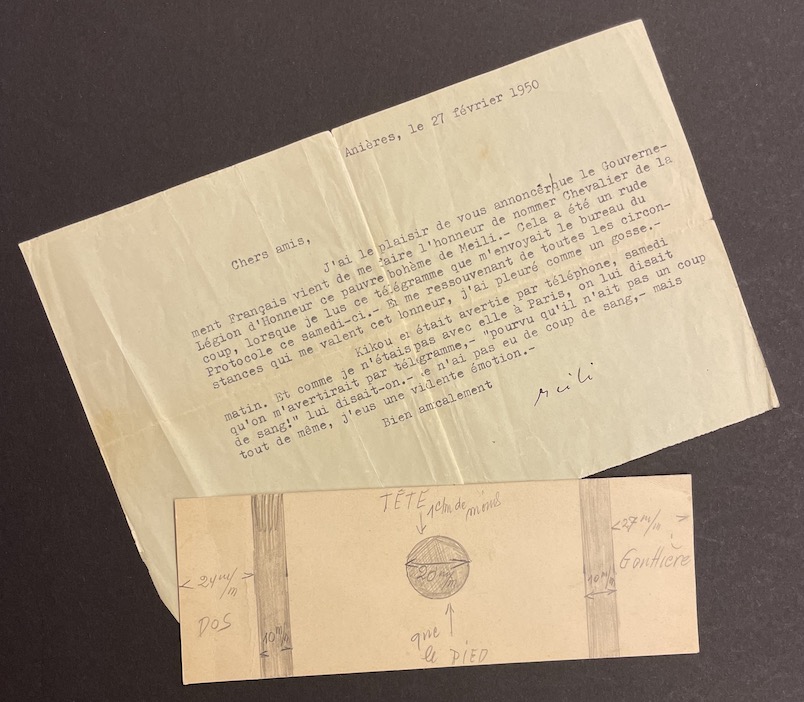 Anières, le 27 février 1950
Chers amis,
J'ai le plaisir de vous annoncer que le Gouverne-
ment Français vient de me faire l'honneur de nommer Chevalier de la
Légion d'Honneur ce pauvre bohème de Meili.- Cela a été un rude
coup, lorsque je lus ce télégramme que m'envoyait le bureau du
Protocole ce samedi-ci.- Et me ressouvenant de toutes les circon-
stances qui me valent cet honneur, j'ai pleuré comme un gosse.-
Kikou en était avertie par téléphone, samedi
matin. Et comme je n'étais pas avec elle à Paris, on lui disait
qu'on m'avertirait par télégramme,- "pourvu qu'il n'ait pas un coup
de sang!" lui disait-on.- Je n'ai pas eu de coup de sang,- mais
tout de même, j'eus une vidente émotion.-
Bien amcalement
Meili
TÊTE
1c/m de moins
27 m/m
24 m/m
20 m/m
10 m/m
Gouttière
DOS
10 m/m
que
le PIED